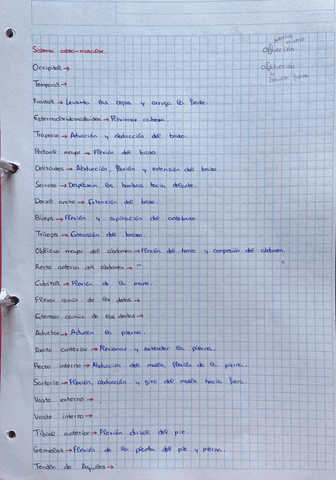 Sistema osteo-muscular.
Occipital →
Temporal →
Frontal → Levanta las cejas y arruga la frente.
Esternocleidomastoideo → Flexiona cabeza.
Trapecio → Aducción y abducción del brazo.
Pectoral mayor → Flexión del brazo.
Deltoides → Abducción, flexión y extensión del brazo.
Serrato → Desplazan los hombros hacia delante.
Dorsal ancho → Extensión del brazo
Bíceps → Flexión y supinación del antebrazo.
Tríceps → Extensión del brazo.
Oblicuo mayor del abdomen → Flexión del tronco y compresión del abdomen.
Recto anterior del abdomen → "
Cubital → Flexión de la mano.
Flexor común de los dedos →
Extensor común de los dedos →
Aductor → Aducen la pierna.
Recto anterior → Flexionar y extender la pierna.
Recto interno → Abducción del muslo, flexión de la pierna.
Sartorio → Flexión, abducción y giro del muslo hacia fuera.
Vasto externo →
Vasto interno →
Tibial anterior → Flexión dorsal del pie.
Gemelos → Flexión de la planta del pie y pierna.
Tendón de Aquiles →
abducción